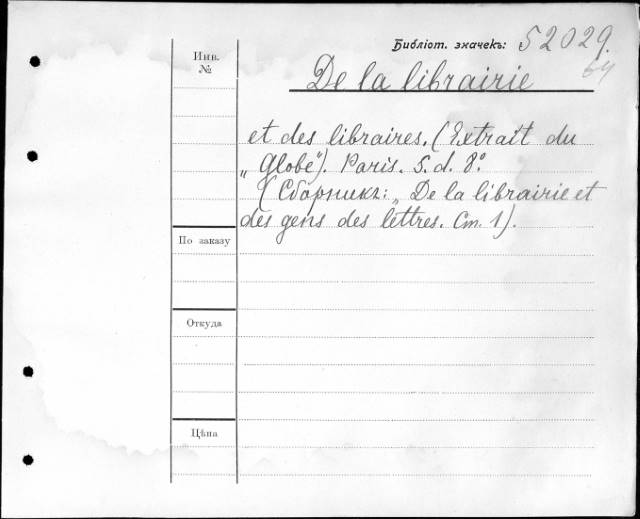 Библіот. значекъ: 52029.
64
Инв.
№
De la librairie
et des libraires. (Extrait du
„Globe"). Paris. S. d. 8°
(Сборникъ: „De la librairie et
des gens des lettres. Ст. 1).
По заказу
Откуда
Цѣна